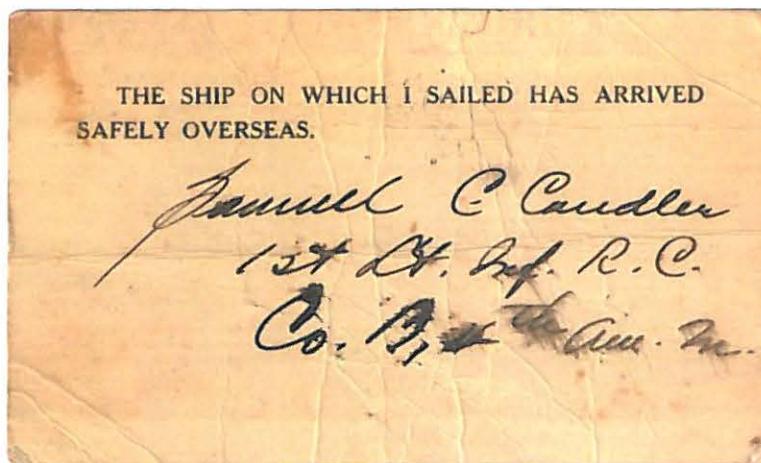 THE SHIP ON WHICH I SAILED HAS ARRIVED
SAFELY OVERSEAS.
Samuel C Candler
1st Lt. Inf. R. C.
Co. B, th Am. M.